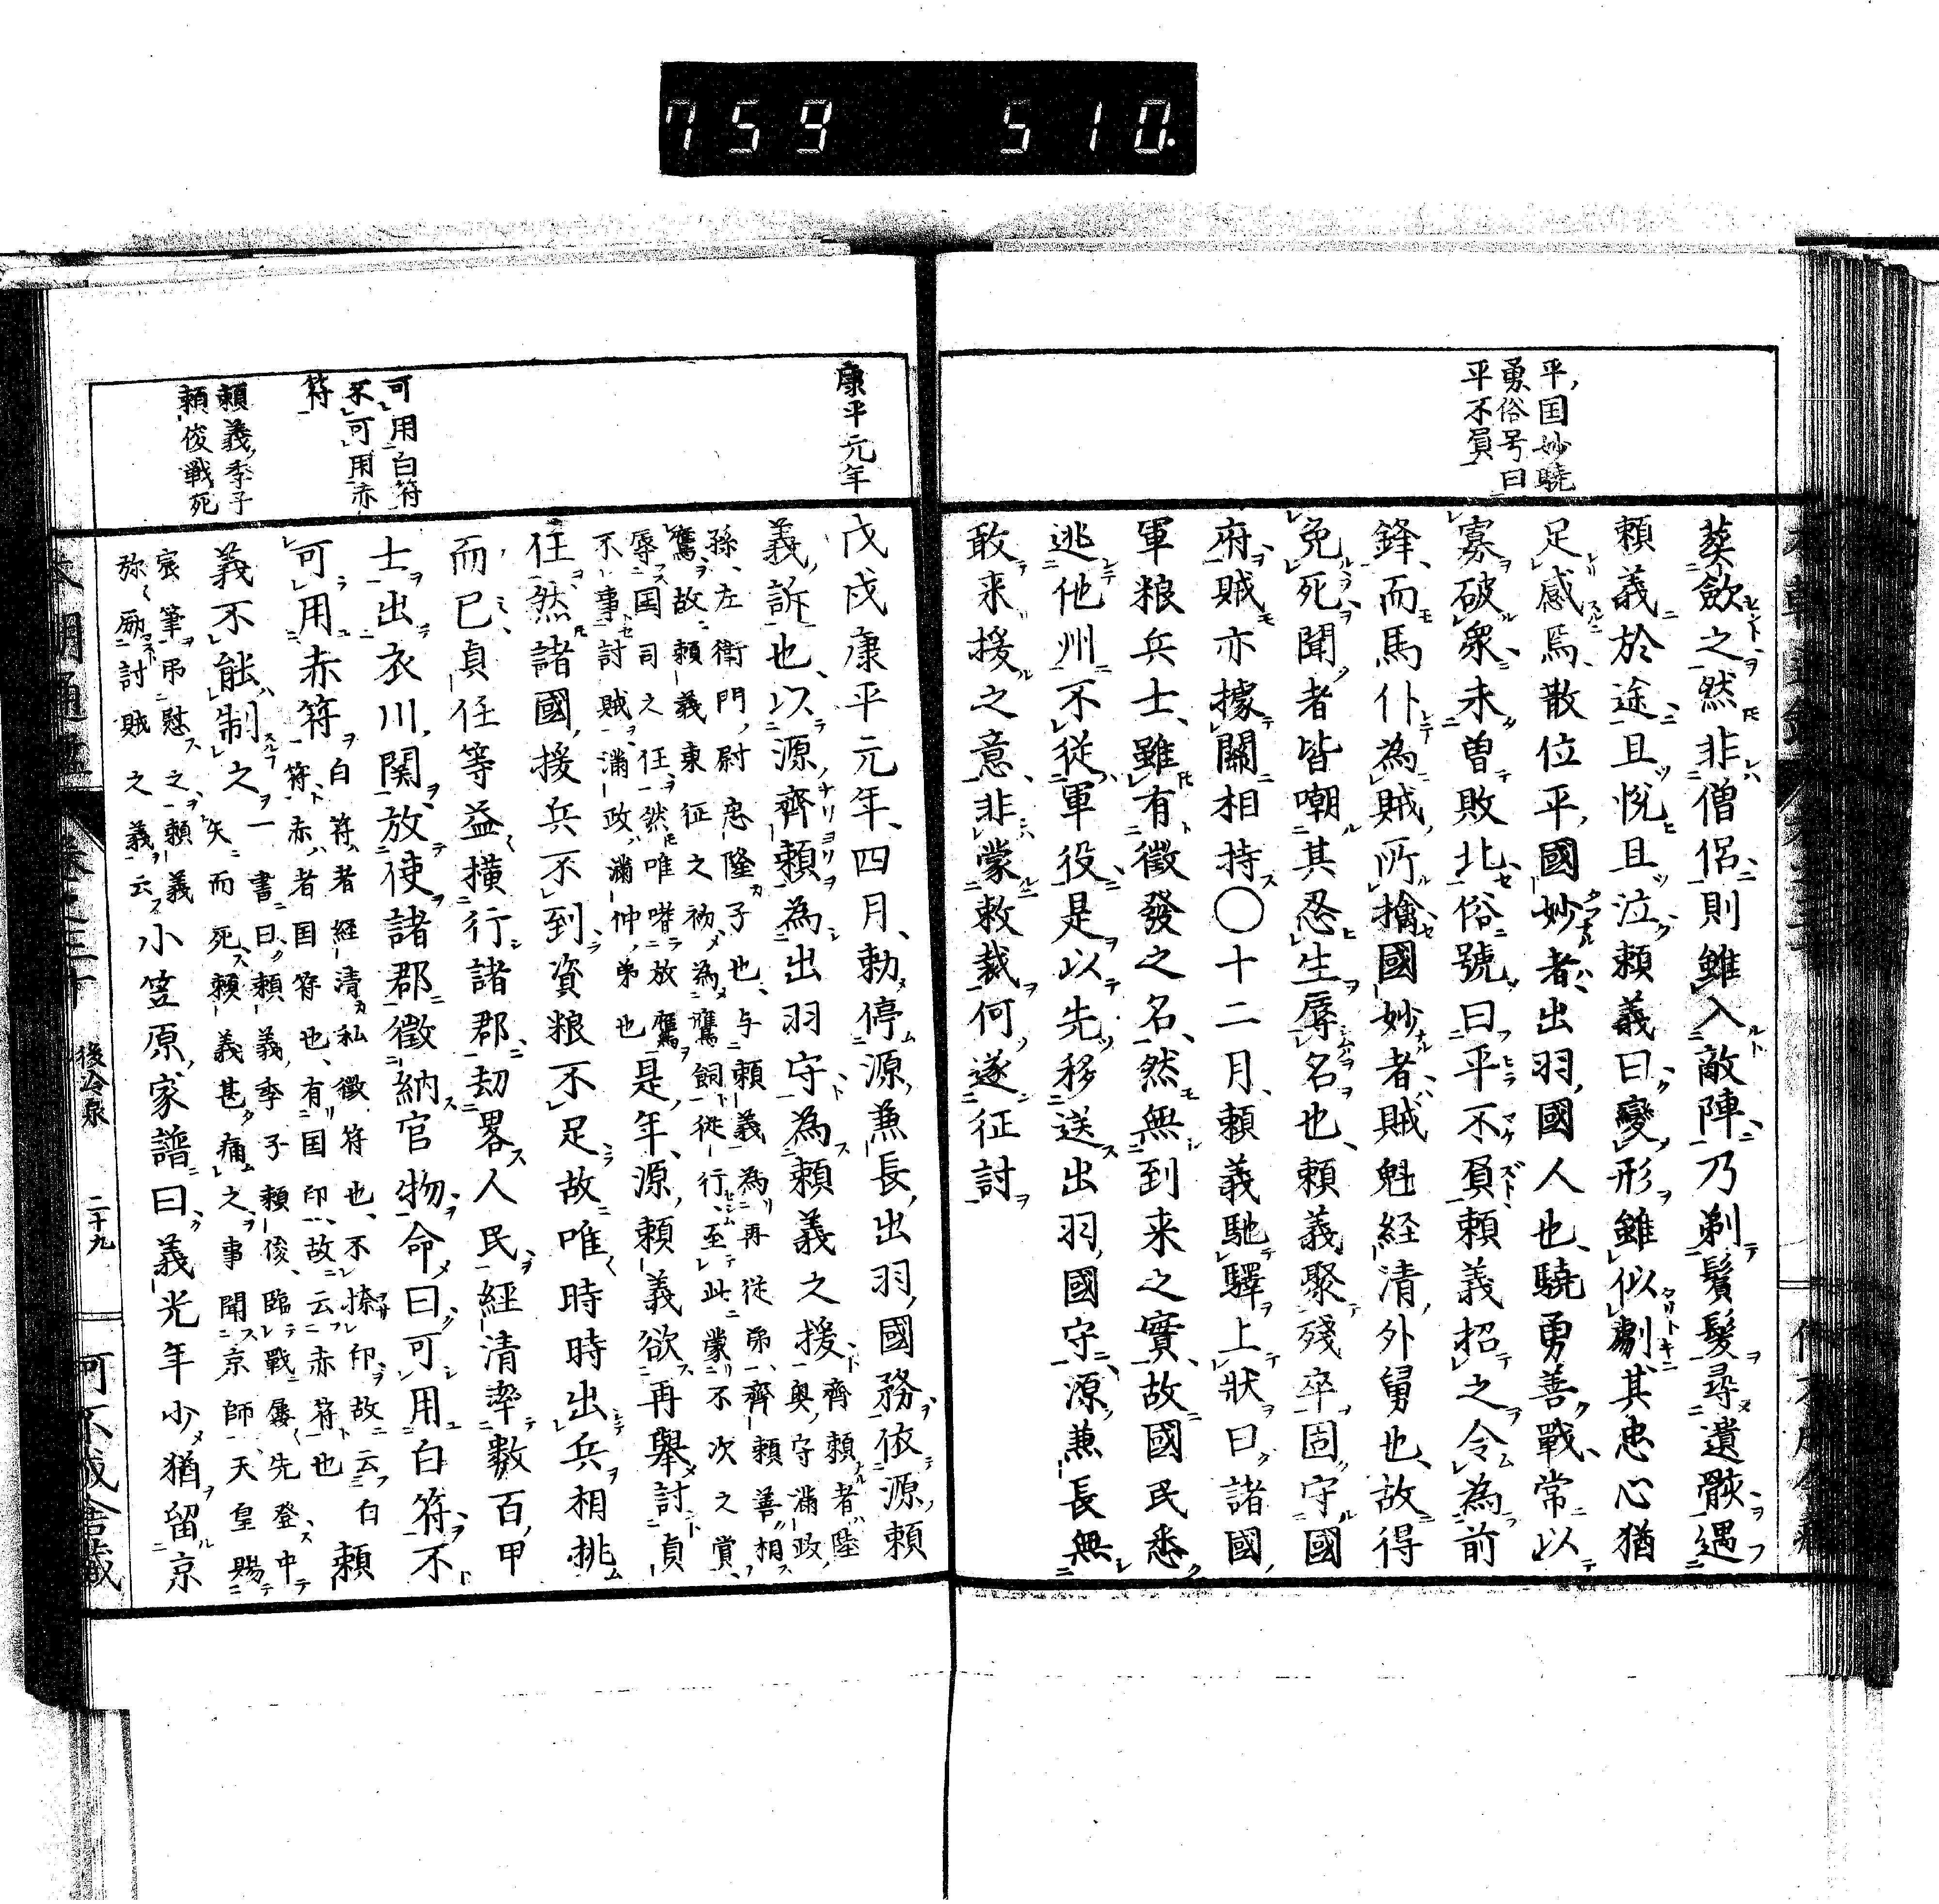 759 510.
平国妙驍
勇俗号曰
平不負
葬斂之然非僧侶則雖入敵陣乃剃鬢髮尋遺骸遇
頼義於途且悦且泣頼義曰變形雖似劇其忠心猶
足感焉散位平國妙者出羽國人也驍勇善戰常以
寡破衆未曽敗北俗號曰平不負頼義招之令為前
鋒而馬仆為賊所擒國妙者賊魁経清外舅也故得
免死聞者皆嘲其忍生辱名也頼義聚殘卒固守國
府賊亦據關相持〇十二月頼義馳驛上狀曰諸國
軍粮兵士雖有徵發之名然無到来之實故國民悉
逃他州不從軍役是以先移送出羽國守源兼長無
敢来援之意非蒙敕裁何遂征討
康平元年
可用白符
不可用赤
符
頼義季子
頼俊戦死
戊戌康平元年四月勅停源兼長出羽國務依源頼
義訴也以源齊頼為出羽守為頼義之援齊頼者陸
奥守滿政
孫左衛門尉忠隆子也与頼義為再従弟齊頼善相
鷹故頼義東征之初為鷹飼徒行至此蒙不次之賞
辱国司之任然唯嗜放鷹
不事討賊滿政滿仲弟也是年源頼義欲再舉討貞
任然諸國援兵不到資粮不足故唯時時出兵相挑
而已貞任等益横行諸郡劫畧人民経清率數百甲
士出衣川関放使諸郡徵納官物命曰可用白符不
可用赤符白符者経清私徵符也不捺印故云白
符赤者国符也有国印故云赤符也頼
義不能制之一書曰頼義季子頼俊臨戰屡先登中
矢而死頼義甚痛之事聞京師天皇賜
宸筆弔慰之頼義
弥励討賊之義云小笠原家譜曰義光年少猶留京
後冷泉
二十九